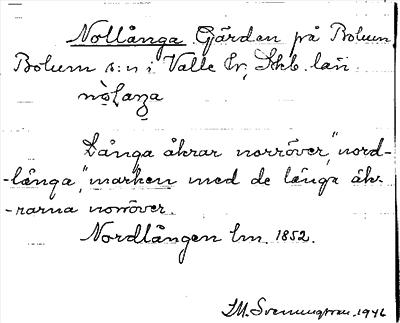 Nollånga Gärden på Bolum
Bolum s:n i Valle hr, Skb. län
Långa åkrar norröver, "nord-
-långa," marken med de långa åk-
-rarna norröver.
Nordlången lm. 1852.
1946